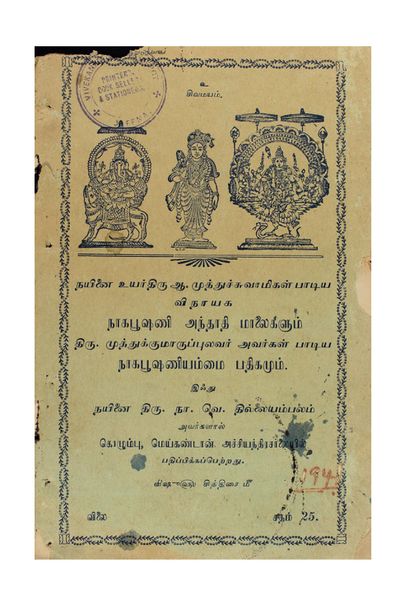 உ
சிவமயம்.
VIVEKAN
PRINTERS,
BOOK SELLERS
& STATIONERS.
JAFFNA
நயினை உயர்திரு ஆ. முத்துச்சுவாமிகள் பாடிய
விநாயக
நாகபூஷணி அந்தாதி மாலைகளும்
திரு. முத்துக்குமாருப்புலவர் அவர்கள் பாடிய
நாகபூஷணியம்மை பதிகமும்.
இஃது
நயினை திரு. நா. வே. தில்லையம்பலம்
அவர்களால்
கொழும்பு, மெய்கண்டான் அச்சியந்திரசாலையில்
பதிப்பிக்கப்பெற்றது.
சித்திரை மீ
விலை சதம் 25.